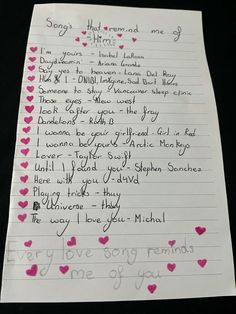 Songs that remind me of
Him
I'm yours - Isabel LaRosa
Daydreamin' - Ariana Grande
Say yes to heaven - Lana Del Ray
Him & I -
Someone to stay - Vancouver sleep clinic
Those eyes - New west
look after you - the fray
Dandelions - Ruth B
I wanna be your girlfriend - Girl in Red
I wanna be yours - Arctic Monkeys
Lover - Taylor Swift
Until I found you - Stephen Sanchez
Here with you - d4vd
Playing tricks - thuy
Universe - thuy
The way I love you - Michal
Every love song reminds
me of you